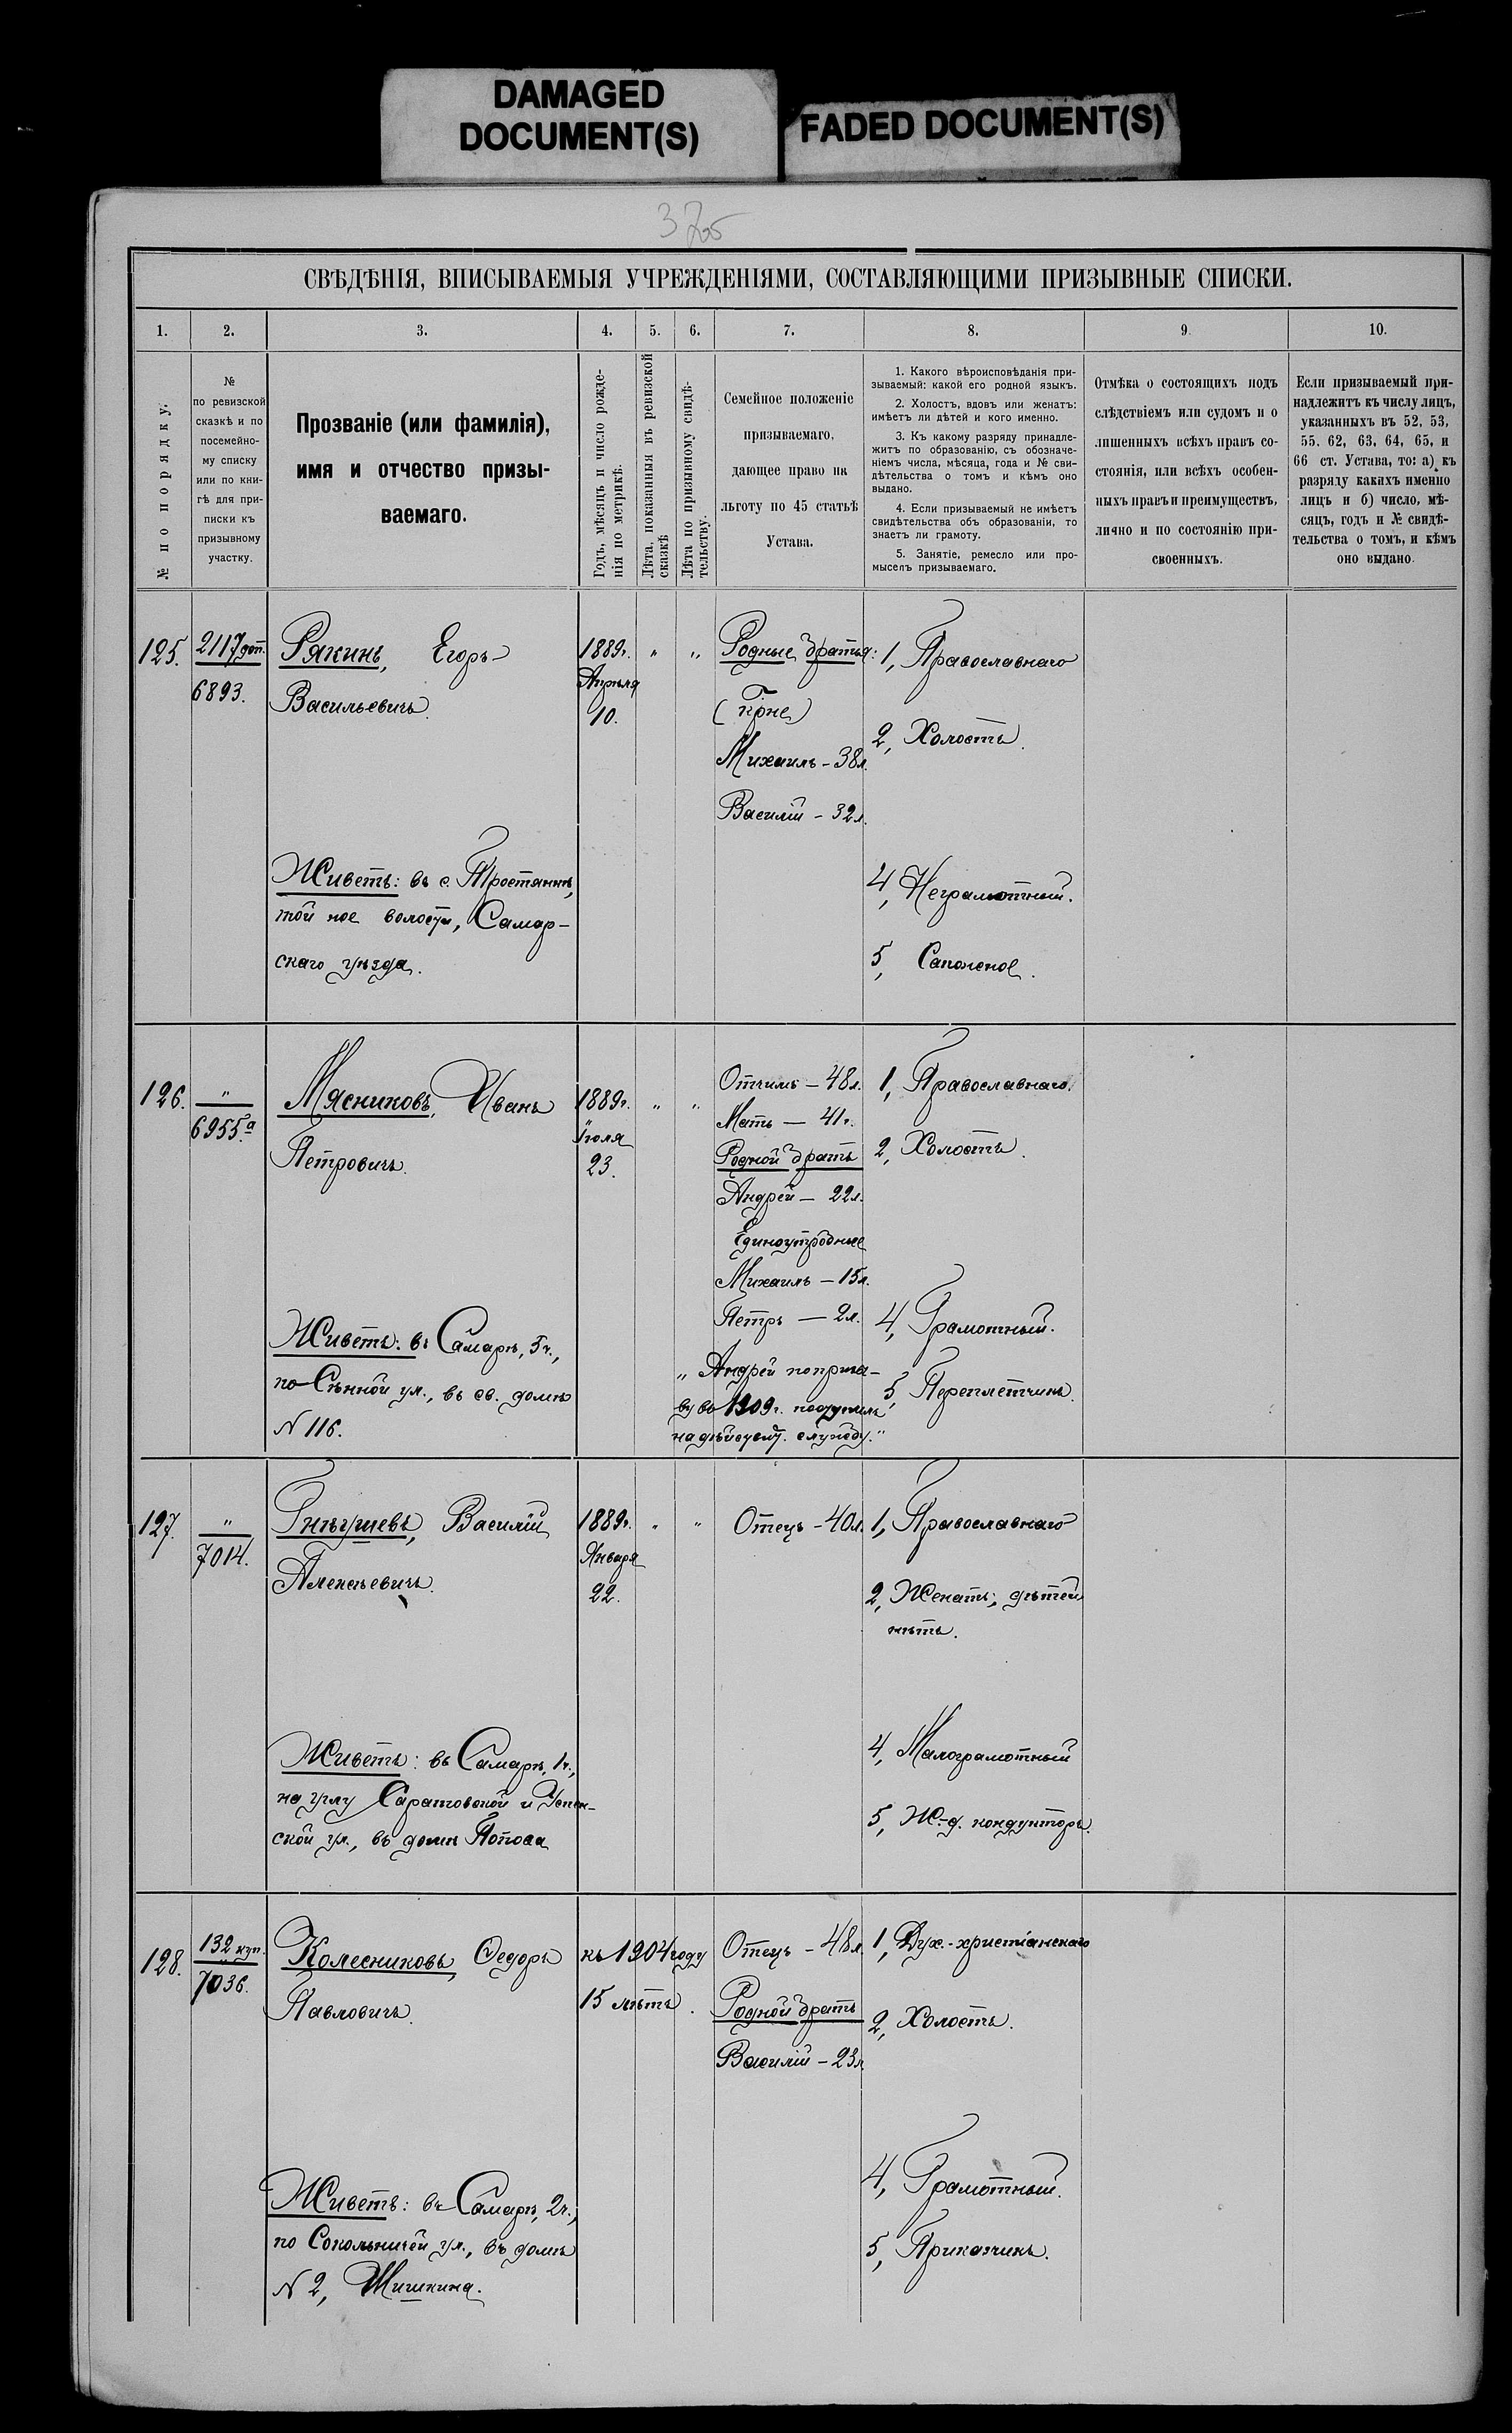 DAMAGED
DOCUMENT(S)
FADED DOCUMENT(S)
СВѢДѢНІЯ, ВПИСЫВАЕМЫЯ УЧРЕЖДЕНІЯМИ, СОСТАВЛЯЮЩИМИ ПРИЗЫВНЫЕ СПИСКИ.
1.
2.
3.
4.
5.
6.
7.
8.
9.
10.
№ по порядку.
№
по ревизской
сказкѣ и по
посемейно-
му списку
или по кни-
гѣ для при-
писки къ
призывному
участку.
Прозваніе (или фамилія),
имя и отчество призы-
ваемаго.
Годъ, мѣсяцъ и число рожде-
нія по метрикѣ.
Лѣта, показанныя въ ревизской
сказкѣ
Лѣта по призывному свидѣ-
тельству.
Семейное положеніе
призываемаго,
дающее право на
льготу по 45 статьѣ
Устава.
1. Какого вѣроисповѣданія при-
зываемый: какой его родной языкъ.
2. Холостъ, вдовъ или женатъ:
имѣетъ ли дѣтей и кого именно.
3. Къ какому разряду принадле-
житъ по образованію, съ обозначе-
ніемъ числа, мѣсяца, года и № сви-
дѣтельства о томъ и кѣмъ оно
выдано.
4. Если призываемый не имѣетъ
свидѣтельства объ образованіи, то
знаетъ ли грамоту.
5. Занятіе, ремесло или про-
мыселъ призываемаго.
Отмѣка о состоящихъ подъ
слѣдствіемъ или судомъ и о
лишенныхъ всѣхъ правъ со-
стоянія, или всѣхъ особен-
ныхъ правъ и преимуществъ,
лично и по состоянію при-
своенныхъ.
Если призываемый при-
надлежитъ къ числу лицъ,
указанныхъ въ 52, 53,
55. 62, 63, 64, 65, и
66 ст. Устава, то: а) къ
разряду какихъ именно
лицъ и б) число, мѣ-
сяцъ, годъ и № свидѣ-
тельства о томъ, и кѣмъ
оно выдано.
125.
2117 доп.
6893.
Рякинъ, Егоръ
Васильевичъ.
Живетъ: въ с.
той же волости, Самар-
скаго уѣзда.
1889г.
Апрѣля
10.
" "
Родные братья:
Михаилъ - 38л.
Василій - 32л.
1, Православнаго
2, Холостъ.
4, Неграмотный.
5, Сапожное.
126.
"
6955.а
Мясниковъ, Иванъ
Петровичъ.
Живетъ: въ Самарѣ, 5ч.,
по Сѣнной ул., въ св. домѣ
N 116.
1889г.
Іюля
23.
" "
Отчимъ - 48л.
Мать - 41г.
Родной братъ
Андрей - 22л.
Единоутробные
Михаилъ - 15л.
Петръ - 2л.
„Андрей по призы-
ву во 1909г. поступилъ
на дѣйству. службу."
1, Православнаго.
2, Холостъ.
4, Грамотный.
5, Переплетчикъ.
127.
"
7014.
Гнѣушевъ, Василій
Алексѣевичъ.
Живетъ: въ Самарѣ, 1ч.,
на углу Саратовской и Успен-
ской ул., въ домѣ Попова
1889г.
Января
22.
" "
Отецъ - 40л.
1, Православнаго
2, Женатъ; дѣтей
нѣтъ.
4, Малограмотный
5, Ж-д. кондукторъ.
128.
132 куп.
7036.
Колесниковъ, Ѳедоръ
Павловичъ.
Живетъ: въ Самарѣ, 2ч.,
по Сокольничей ул., въ домѣ
N 2, Шишкина.
къ 1904 году
15 лѣтъ.
Отецъ - 48л.
Родной братъ
Василій - 23л.
1, Дух.-христіанскаго
2, Холостъ.
4, Грамотный.
5, Прикащикъ.